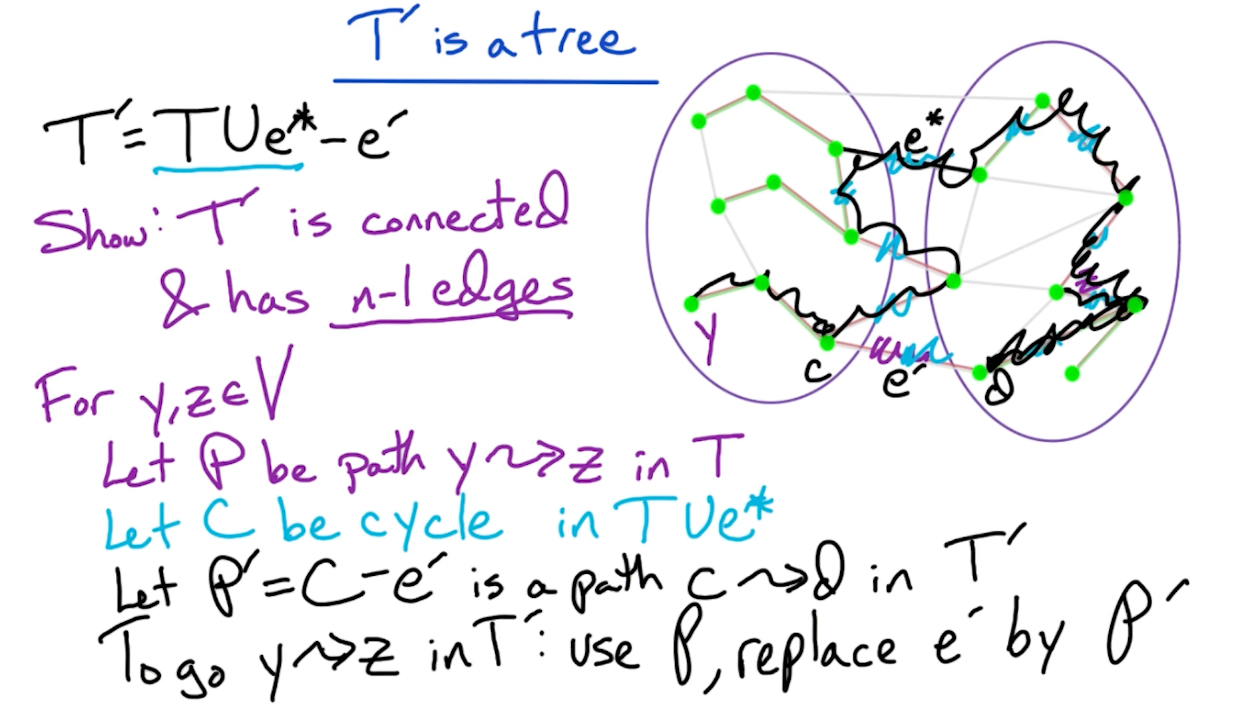 T′ is a tree
T′ = T ∪ e* − e′
Show: T′ is connected
& has n-1 edges
For y, z ∈ V
Let P be path y ⇝ z in T
Let C be cycle in T ∪ e*
Let P′ = C − e′ is a path c ⇝ d in T′
To go y ⇝ z in T′: use P, replace e′ by P′
e*
y
c
e′
d